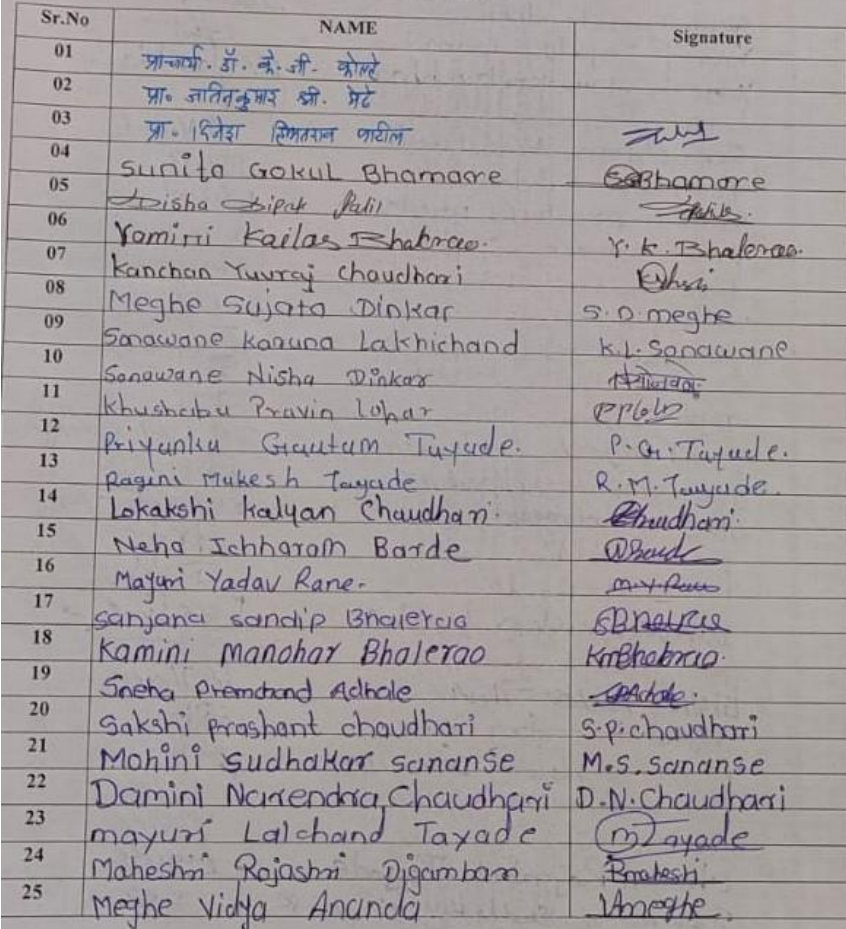 Sr.No NAME Signature
01 प्राचार्य. डॉ. के. जी. कोल्हे
02 प्रा. जतिनकुमार श्री. मेटे
03 प्रा. दिनेश हिम्मतराव पाटील
04 Sunita Gokul Bhamare SGBhamare
05 Disha Dipak Patil
06 Yamini Kailas Bhalerao. Y. K. Bhalerao.
07 Kanchan Yuvraj Chaudhari
08 Meghe Sujata Dinkar S. D. meghe
09 Sonawane Karuna Lakhichand K.L. Sonawane
10 Sonawane Nisha Dinkar
11 Khushabu Pravin Lohar
12 Priyanka Gautam Tayade. P. G. Tayade.
13 Ragini Mukesh Tayade R. M. Tayade.
14 Lokakshi Kalyan Chaudhari. Chaudhari.
15 Neha Ichharam Barde
16 Mayuri Yadav Rane. M.Y. Rane
17 Sanjana Sandip Bhalerao SBhalerao
18 Kamini Manohar Bhalerao KmBhalerao.
19 Sneha Premchand Adhale
20 Sakshi Prashant chaudhari S.P. chaudhari
21 Mohini Sudhakar sananse M.S. sananse
22 Damini Narendra Chaudhari D.N. Chaudhari
23 mayuri Lalchand Tayade mTayade
24 Maheshri Rajashri Digambar
25 Meghe Vidya Ananda Vmeghe.